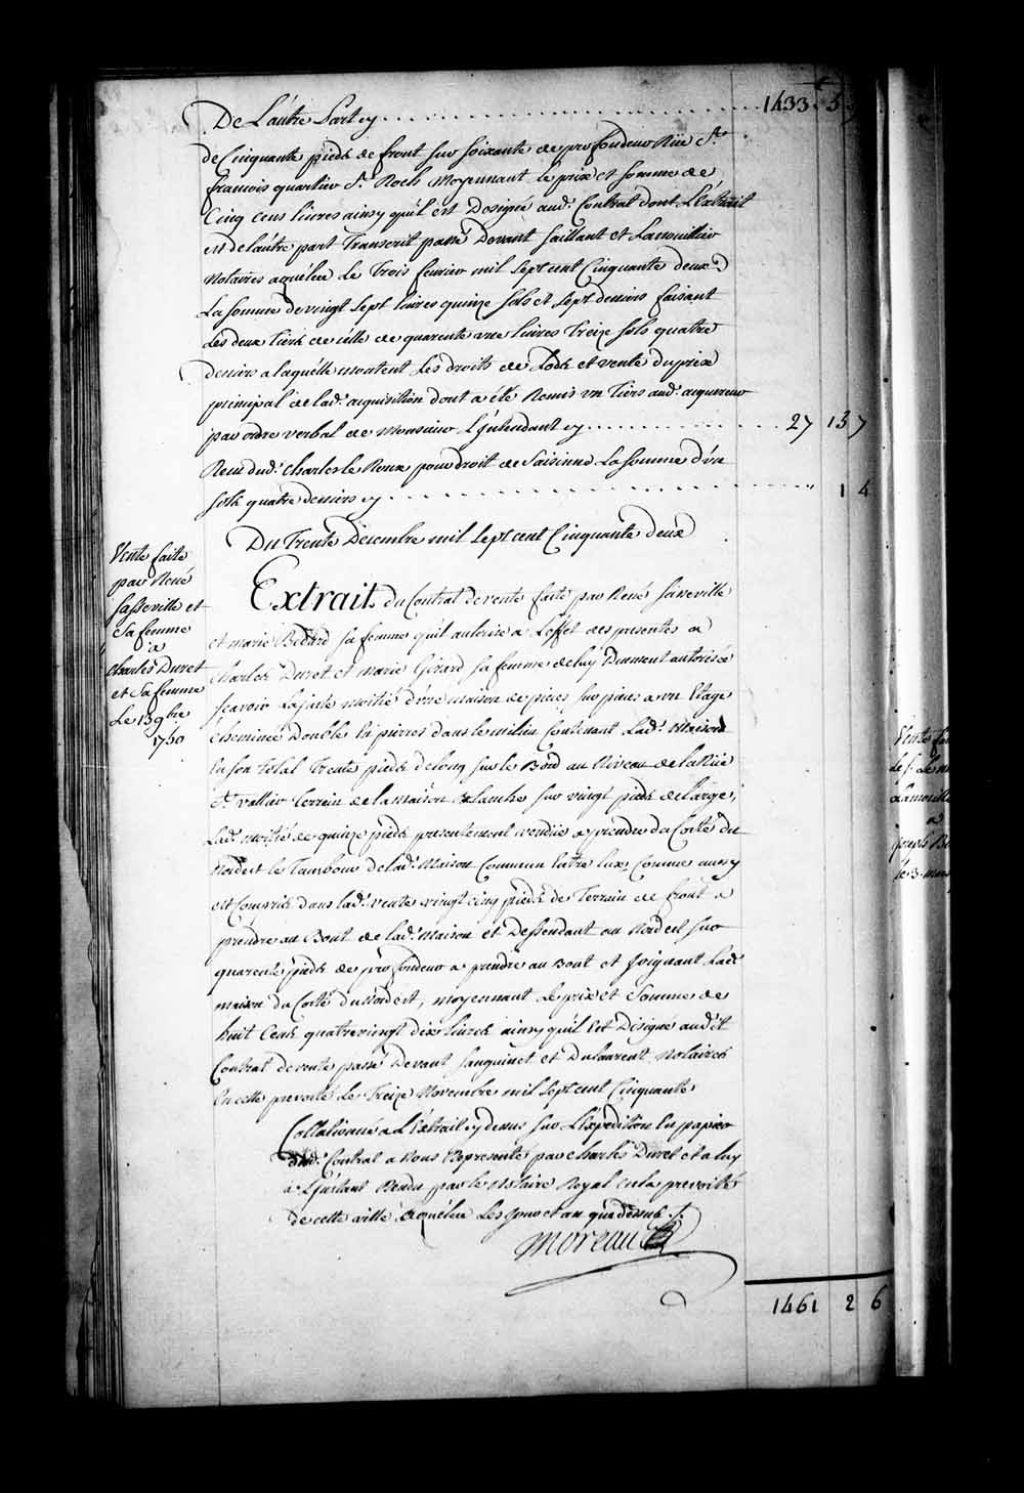 De L'autre Part cy . . . . . . . . . . 1433. 5
de Cinquante pieds de front sur soixante de profondeur Rüe St
francois quartier St Roch Moyennant le prix et somme de
Cinq cens livres ainsy qu'il est Designé aud. Contrat dont L'Extrait
est de l'autre part Transcrit passé Devant saillant et Lanouillier
Notaires a quebec le Trois fevrier mil sept cent Cinquante deux
La somme de vingt sept livres quinze sols et sept deniers faisant
Les deux Tiers de celle de quarente une livres Treize sols quatre
deniers a laquelle montent Les droits de Lods et vente du prix
principal de lad. acquisition dont a été Remis un Tiers aud. acquereur
par ordre verbal de Monsieur L'Intendant cy . . . . . . . . . . 27 15 7
Reçu dud. Charles le Roux pour droit de Saisinne La somme d'un
sols quatre deniers cy . . . . . . . . . . " 1 4
Du Trente Decembre mil sept cent Cinquante deux
Vente faite
par René
sasseville et
Sa femme
a
charles Duret
et Sa femme
Le 13 9bre
1750
Extrait du Contrat de vente faite par René sasseville
et marie Bedard sa femme qu'il autorise a L'effet des presentes a
Charles Duret et Marie Gerard sa femme de luy Duement autorisée
scavoir La juste moitié d'une maison de pieces sur pieces a un Etage
cheminée Double En pierres dans le milieu Contenant Lad. Maison
En son total Trente pieds de long sur le Bord au Niveau de la Rüe
St vallier Terrein de la maison sur vingt pieds de large,
Lad. moitié de quinze pieds presentement vendüe a prendre du Costé du
Nordest le Tambour de lad. Maison Commun Entre Eux Comme aussy
est Compris dans lad. vente vingt cinq pieds de Terrain de front a
prendre au Bout de lad. Maison et Dessendant au Nord est sur
quarente pieds de profondeur a prendre au Bout et Joignant Lade
maison du Costé du Nordest, moyennant le prix et Somme de
huit Cens quatre vingt dix Livres ainsy qu'il Est Designé audit
Contrat de vente passé Devant sanguinet et Dulaurent Notaires
En cette prevosté Le Treize Novembre mil sept cent Cinquante
Collationné a L'Extrait cy dessus sur L'Expedition En papier
dud. Contrat a Nous Representé par charles Duret et a luy
a L'Instant Rendu par le Notaire Royal en la prevosté
de cette ville de quebec Les Jour et an que dessus ./.
Moreau
1461 2 6